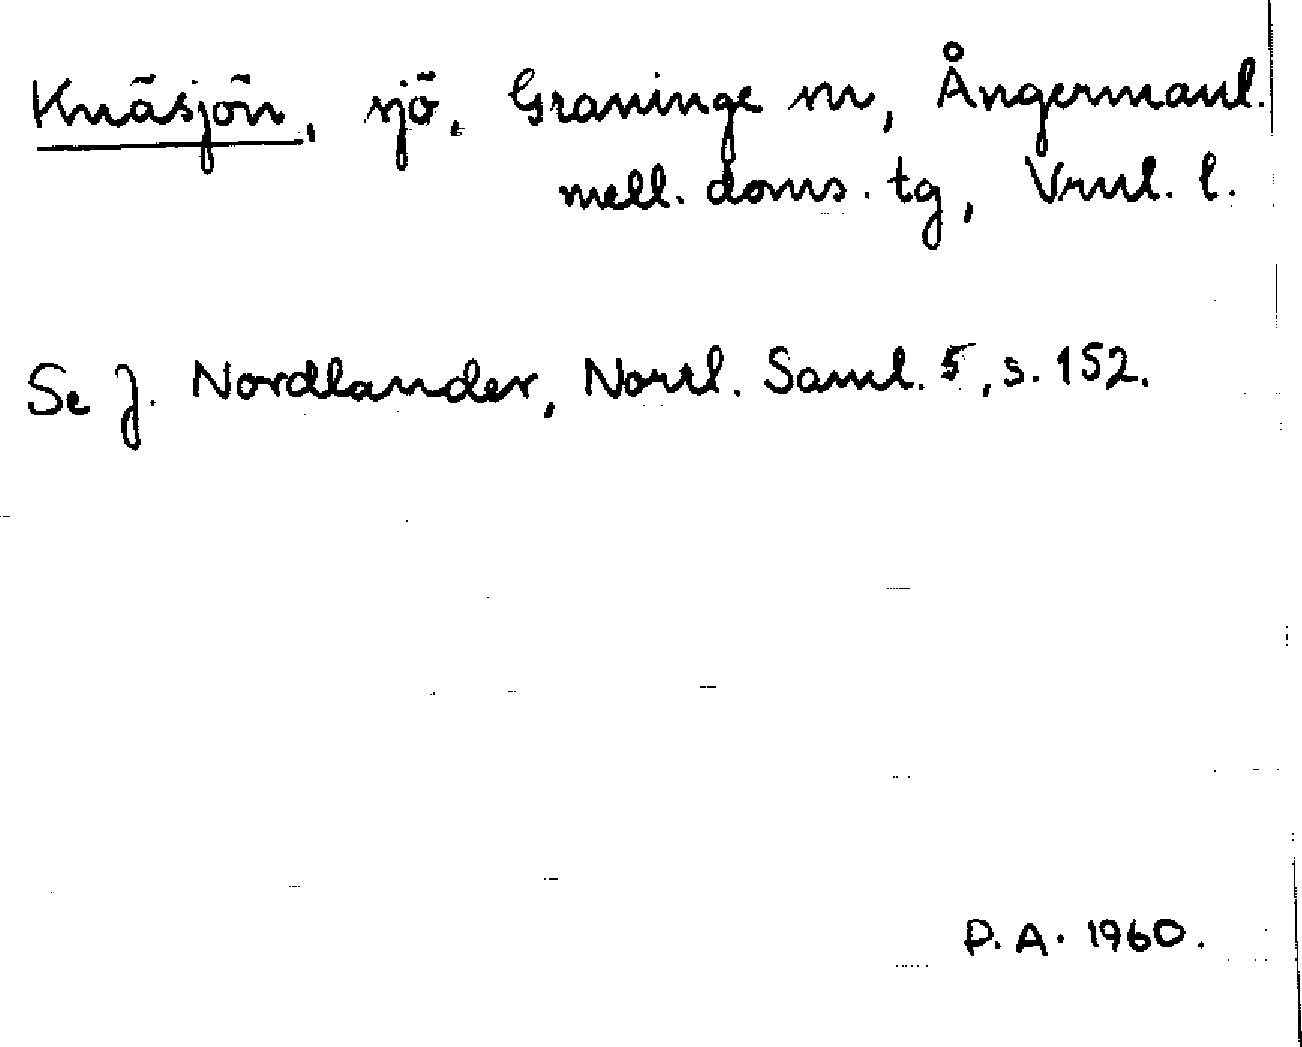 Knäsjön, sjö, Graninge sn, Ångermanl.
mell. doms. tg, Vrnl. l.
Se J. Nordlander, Norrl. Saml. 5, s. 152.
P.A. 1960.